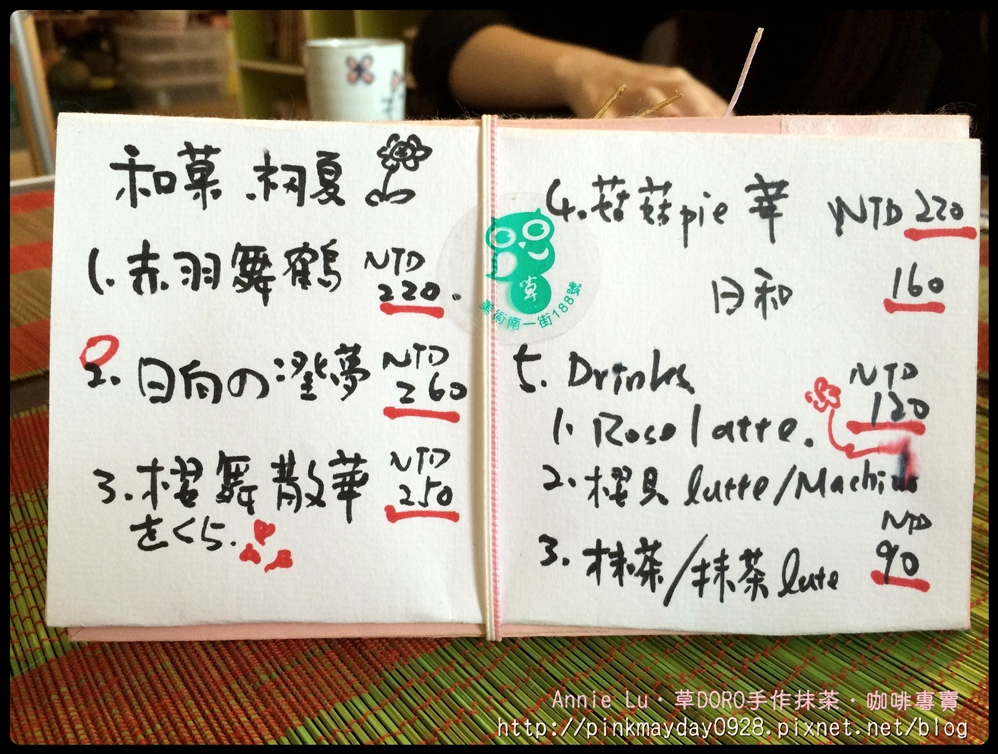 和菓.初夏
1.赤羽舞鶴 NTD 220.
2.日向の澄夢 NTD 260
3.櫻舞散華 NTD 250
さくら.
4.菇菇pie 華 NTD 220
日和 160
5. Drinks
1. Rose latte. NTD 120
2.櫻貝 latte/Machi
3.抹茶/抹茶 late NTD 90
草
美術南一街188號
Annie Lu・草DORO手作抹茶・咖啡專賣
http://pinkmayday0928.pixnet.net/blog